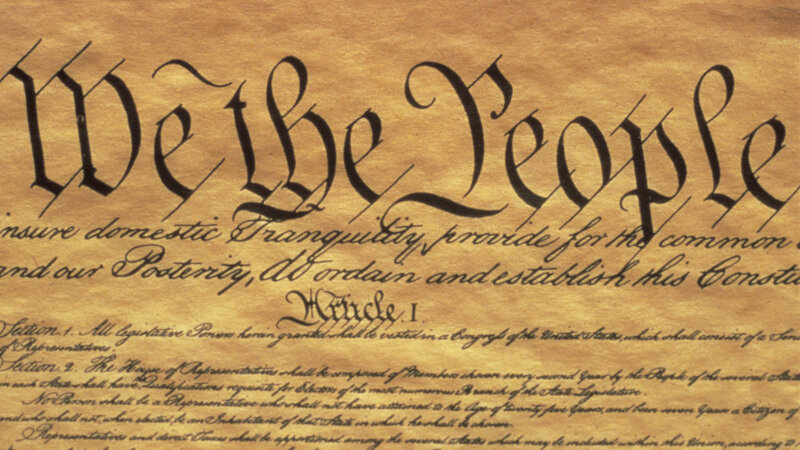 We the People
nsure domestic Tranquility, provide for the common
and our Posterity, do ordain and establish this Constit
Article. I.
Section. 1. All legislative Powers herein granted shall be vested in a Congress of the United States, which shall consist of a Sen
of Representatives.
Section. 2. The House of Representatives shall be composed of Members chosen every second Year by the People of the several States
in each State shall have Qualifications requisite for Electors of the most numerous Branch of the State Legislature.
No Person shall be a Representative who shall not have attained to the Age of twenty five Years, and been seven Years a Citizen of
and who shall not, when elected, be an Inhabitant of that State in which he shall be chosen.
Representatives and direct Taxes shall be apportioned among the several States which may be included within this Union, according to